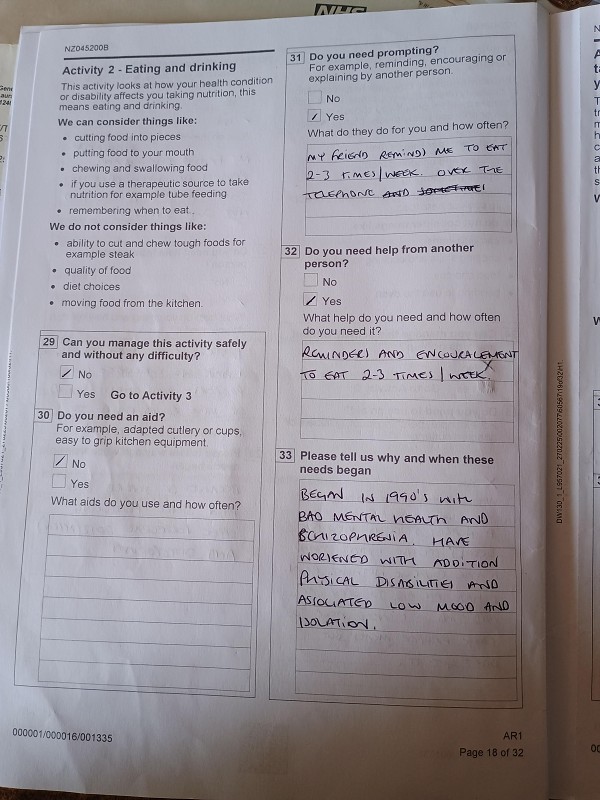 NHS
NZ045200B
Activity 2 - Eating and drinking
This activity looks at how your health condition
or disability affects you taking nutrition, this
means eating and drinking.
We can consider things like:
• cutting food into pieces
• putting food to your mouth
• chewing and swallowing food
• if you use a therapeutic source to take
nutrition for example tube feeding
• remembering when to eat.
We do not consider things like:
• ability to cut and chew tough foods for
example steak
• quality of food
• diet choices
• moving food from the kitchen.
29 Can you manage this activity safely
and without any difficulty?
No
Yes Go to Activity 3
30 Do you need an aid?
For example, adapted cutlery or cups,
easy to grip kitchen equipment.
No
Yes
What aids do you use and how often?
31 Do you need prompting?
For example, reminding, encouraging or
explaining by another person.
No
Yes
What do they do for you and how often?
MY FRIEND REMINDS ME TO EAT
2-3 TIMES/WEEK. OVER THE
TELEPHONE AND SOMETIMES
32 Do you need help from another
person?
No
Yes
What help do you need and how often
do you need it?
REMINDERS AND ENCOURAGEMENT
TO EAT 2-3 TIMES/WEEK
33 Please tell us why and when these
needs began
BEGAN IN 1990's WITH
BAD MENTAL HEALTH AND
SCHIZOPHRENIA. HAVE
WORSENED WITH ADDITION
PHYSICAL DISABILITIES AND
ASSOCIATED LOW MOOD AND
ISOLATION.
000001/000016/001335
AR1
Page 18 of 32